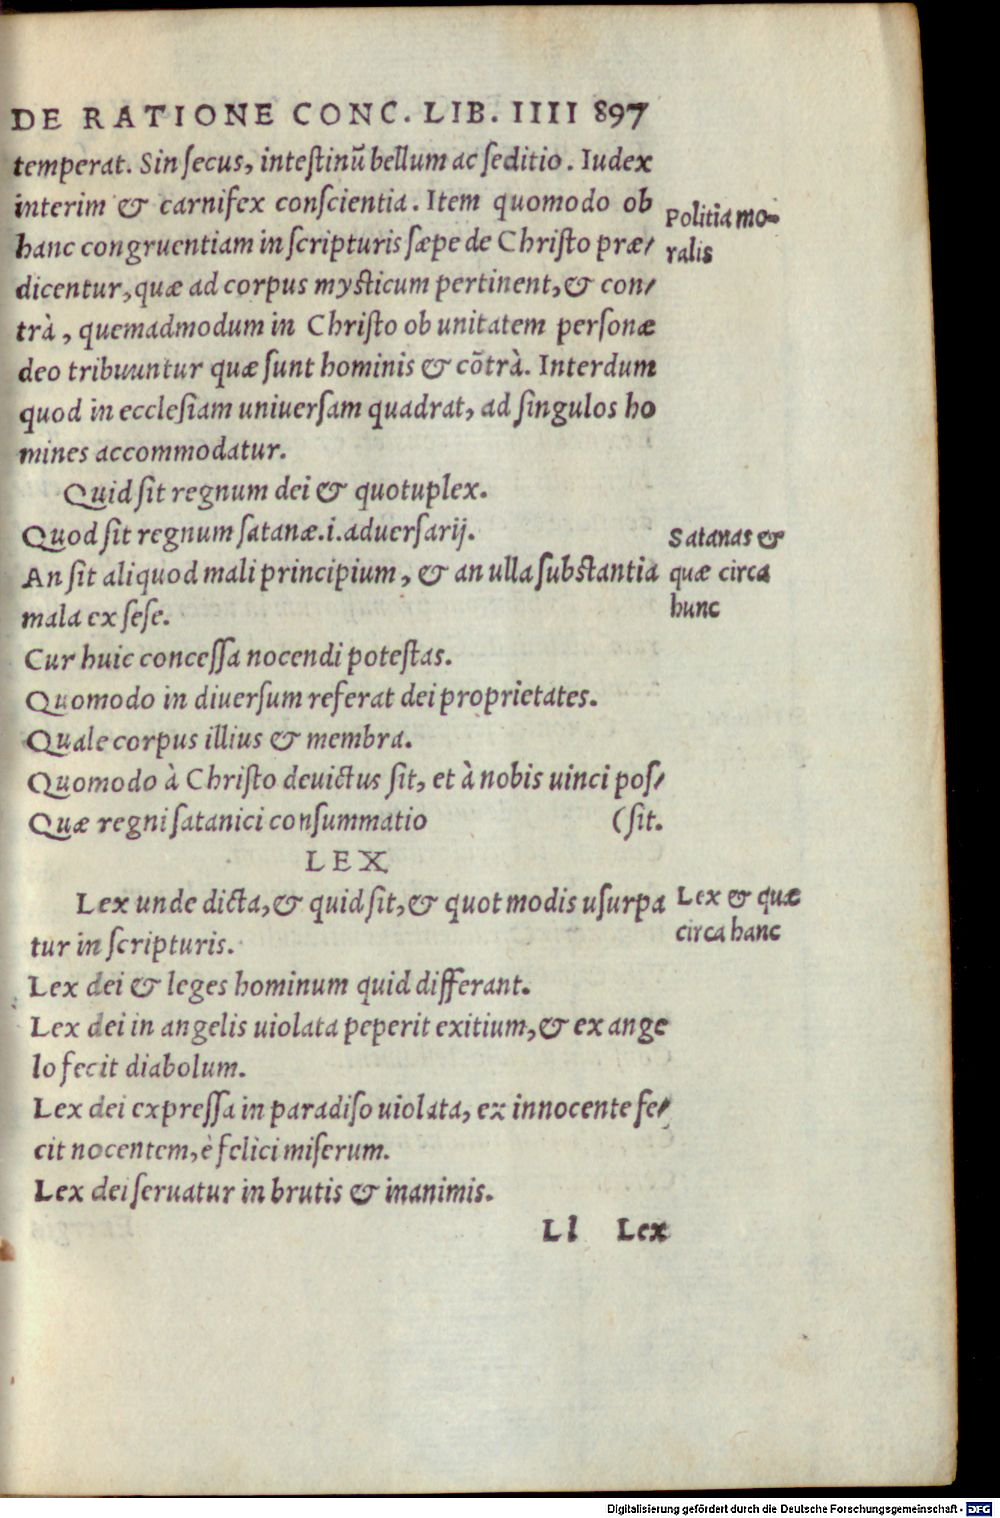 DE RATIONE CONC. LIB. IIII 897
temperat. Sin secus, intestinũ bellum ac seditio. Iudex
interim & carnifex conscientia. Item quomodo ob
hanc congruentiam in scripturis sæpe de Christo præ/
Politia mo-
ralis
dicentur, quæ ad corpus mysticum pertinent, & con/
trà, quemadmodum in Christo ob unitatem personæ
deo tribuuntur quæ sunt hominis & cõtrà. Interdum
quod in ecclesiam uniuersam quadrat, ad singulos ho
mines accommodatur.
Quid sit regnum dei & quotuplex.
Quod sit regnum satanæ.i.aduersarij.
An sit aliquod mali principium, & an ulla substantia
mala ex sese.
Satanas &
quæ circa
hunc
Cur huic concessa nocendi potestas.
Quomodo in diuersum referat dei proprietates.
Quale corpus illius & membra.
Quomodo à Christo deuictus sit, et à nobis uinci pos/
Quæ regni satanici consummatio (sit.
LEX
Lex unde dicta, & quid sit, & quot modis usurpa
tur in scripturis.
Lex & quæ
circa hanc
Lex dei & leges hominum quid differant.
Lex dei in angelis uiolata peperit exitium, & ex ange
lo fecit diabolum.
Lex dei expressa in paradiso uiolata, ex innocente fe/
cit nocentem, è felici miserum.
Lex dei seruatur in brutis & inanimis.
Ll Lex
Digitalisierung gefördert durch die Deutsche Forschungsgemeinschaft - DFG